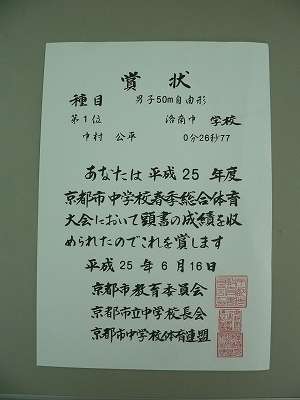 賞状
種目 男子50m自由形
第1位 洛南中 学校
中村 公平 0分26秒77
あなたは平成25年度
京都市中学校春季総合体育
大会において顕書の成績を収
められたのでこれを賞します
平成25年6月16日
京都市教育委員会
京都市立中学校長会
京都市中学校体育連盟